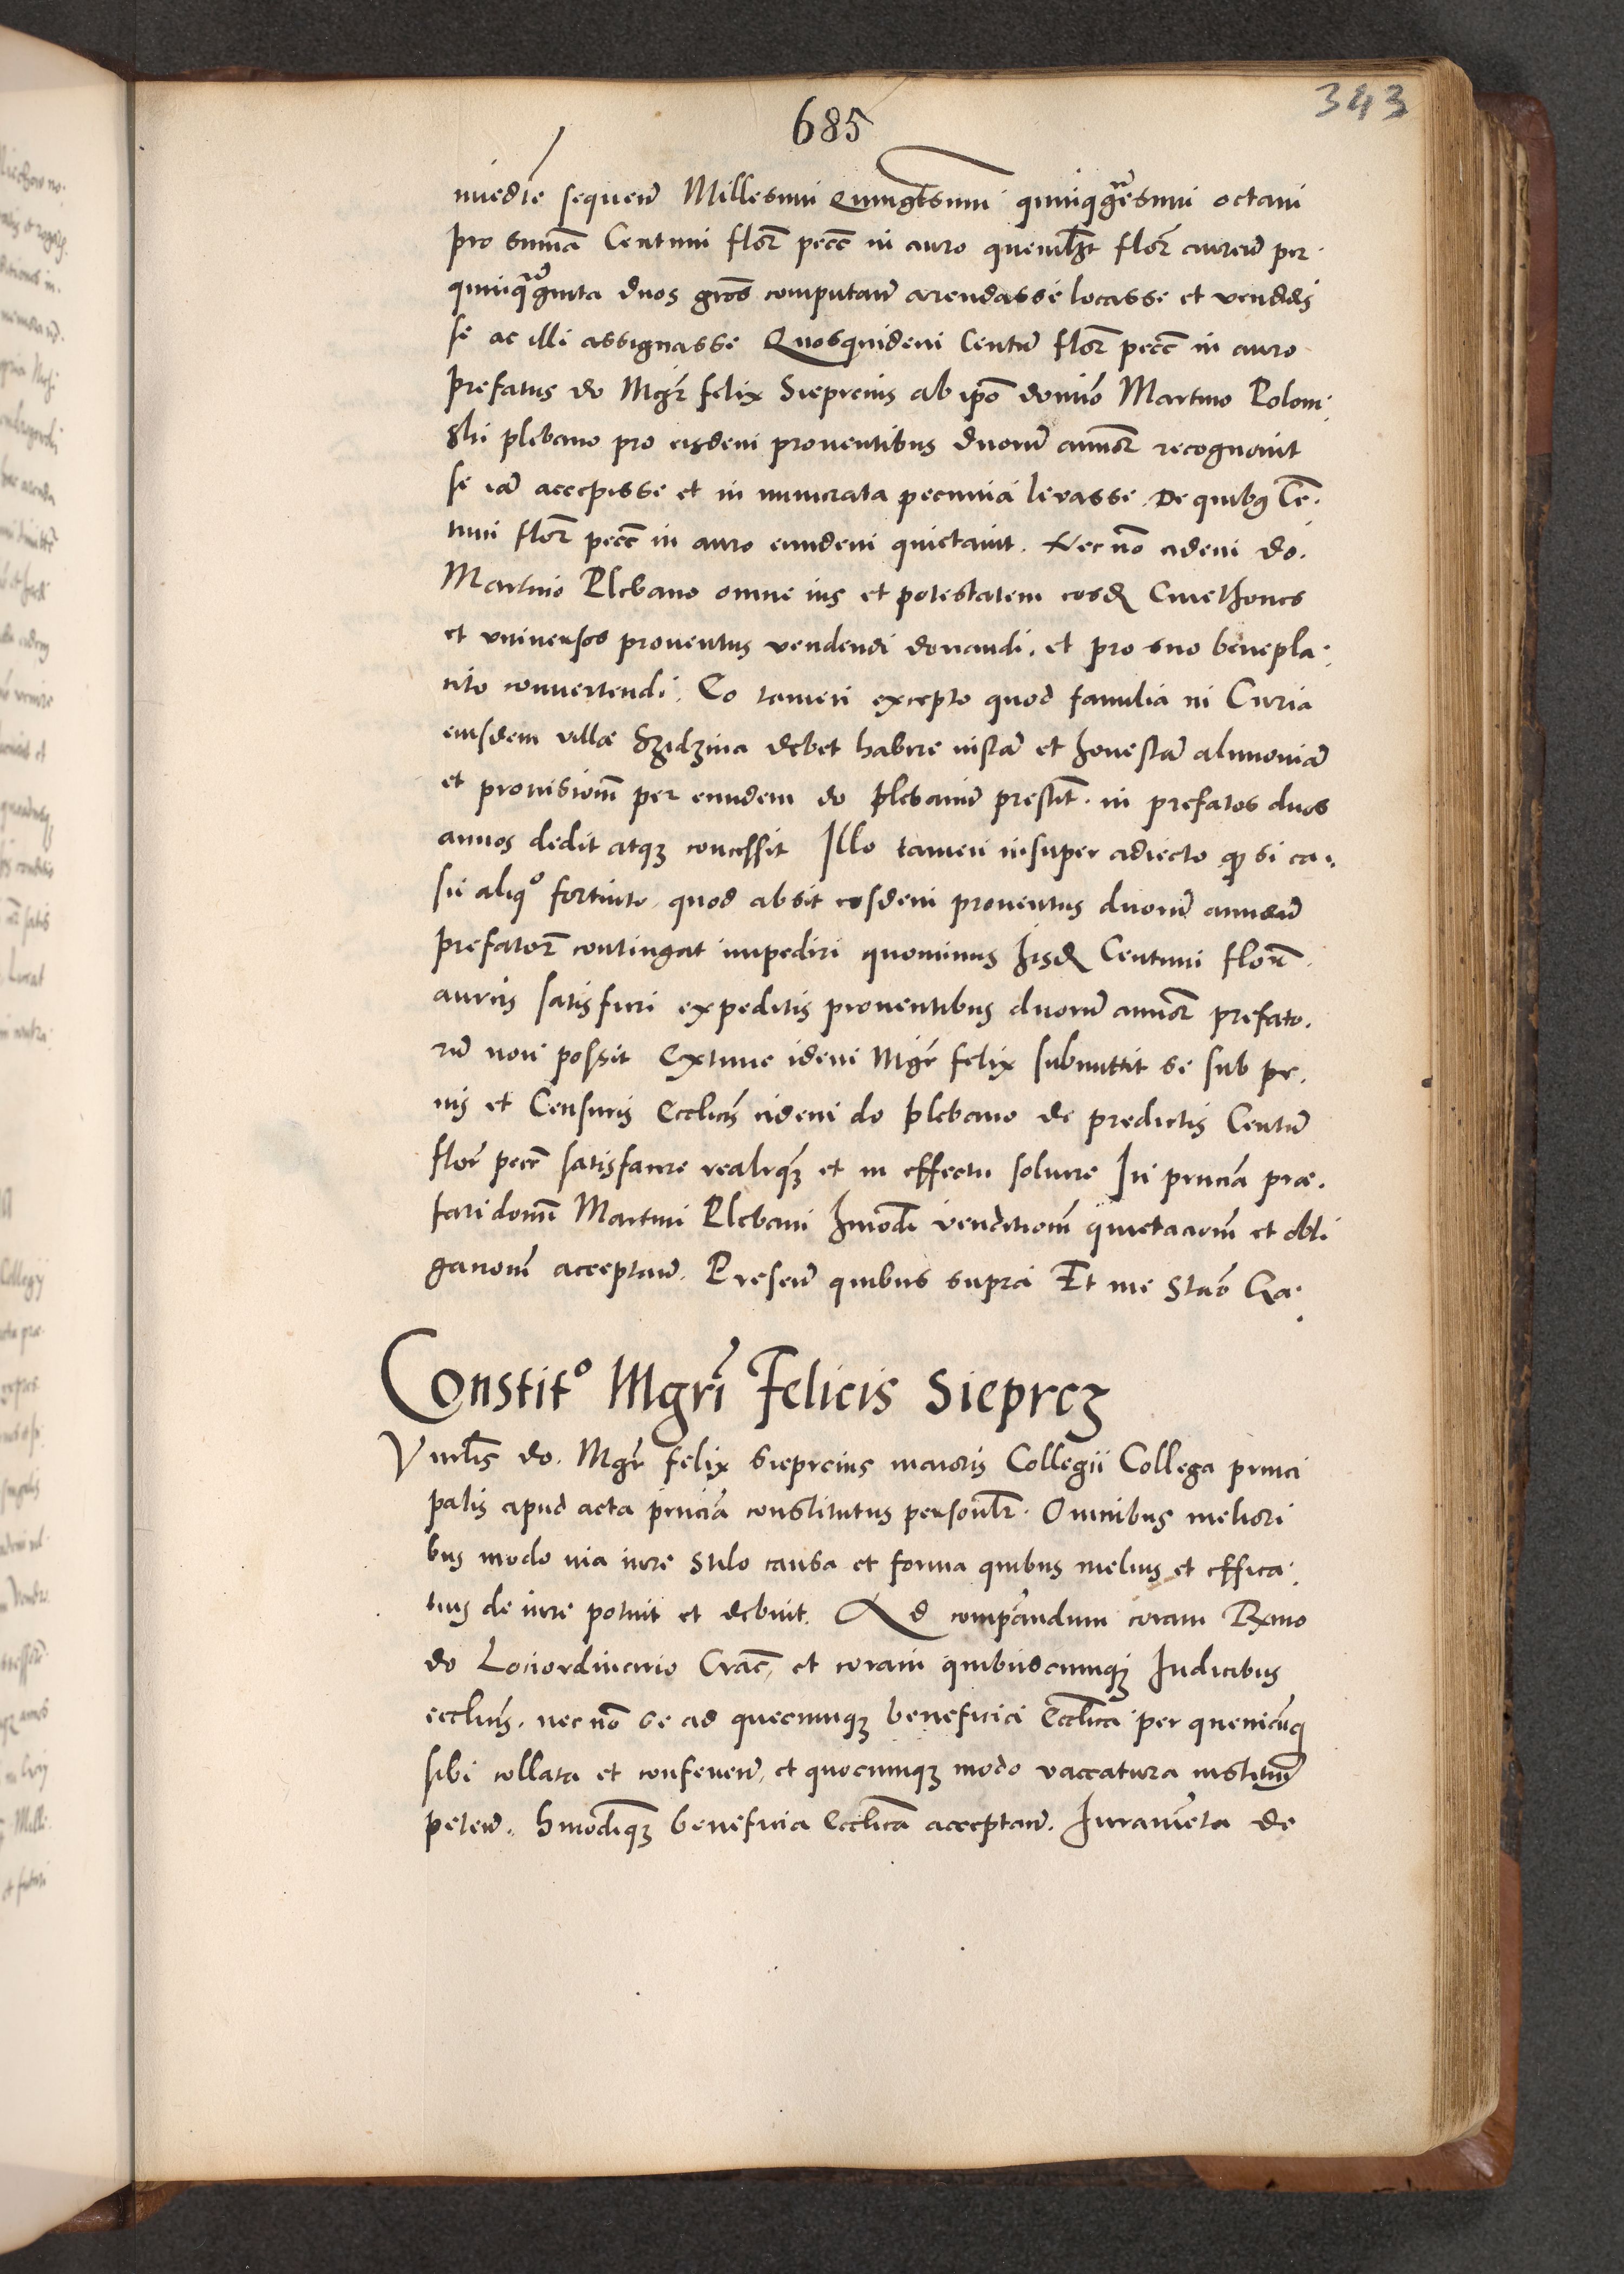 343
685
miedie sequen̄ Millesimi Quingētsimi quinq̄gesimi octavi
pro summa Centum flor̄ pecc̄ in auro quemlibet flor̄ aureū per
quinquaginta duos gros computan̄ arendasse locasse et vendidis
se ac illi assignasse Quosquidem Centū flor̄ pecc̄ in auro
prefatus do Mgr̄ felix Sieprcius ab ipō domīo Martino Polom
ski plebano pro eisdem proventibus duorū annor̄ recognovit
se iam accepisse et in numerata pecunia levasse. De quibus Cē.
tum flor̄ pecc̄ in auro eundem quietavit. Nec nō eidem do.
Martino Plebano omne ius et potestatem eosd Cmethones
et universos proventus vendendi donandi. et pro suo benepla.
cito convertendi. Eo tamen excepto quod familia in Curia
eiusdem villæ Szidzina debet habere iustā et honestā alimoniā
et provisionē per eundem do plebanū prestit. in prefatos duos
annos dedit atq3 concessit Illo tamen insuper adiecto q si ca.
su aliqº fortuito, quod absit eosdem proventus duorū annorū
prefator̄ contingat impediri quominus hisd Centum flor̄
aureis satisfieri expeditis proventibus duorū annor̄ prefato.
rū non possit Extunc idem Mgr̄ felix submittit se sub pe.
nis et Censuris Ecclicis eidem do plebano de predictis Centū
flor̄ pecc̄ satisfacere realiq3 et in effectu solvere In pnciā præ.
fati domī Martini Plebani hmōdi venditionē quietacionē et obli
gacionē acceptan̄. Presen̄ quibus supra Et me Stāo Cra.
Constitº Mgri Felicis Sieprcz
Virlis do. Mgr̄ felix Sieprcius maioris Collegii Collega princi
palis apud acta pnciā constitutus personlr. Omnibus meliori
bus modo via iure stilo causa et forma quibus melius et effica.
tius de iure potuit et debuit. Ad compēandum coram Rxmo
do Lociordinario Crac, et coram quibuscumq3 Iudicibus
ecclicis. nec nō se ad quecumq3 beneficia Ecclica per quemcūq
sibi collata et conferen̄, et quocumq3 modo vaccatura institui
peten̄. Hmōdiq3 beneficia Ecclica acceptan̄. Iuramēta de